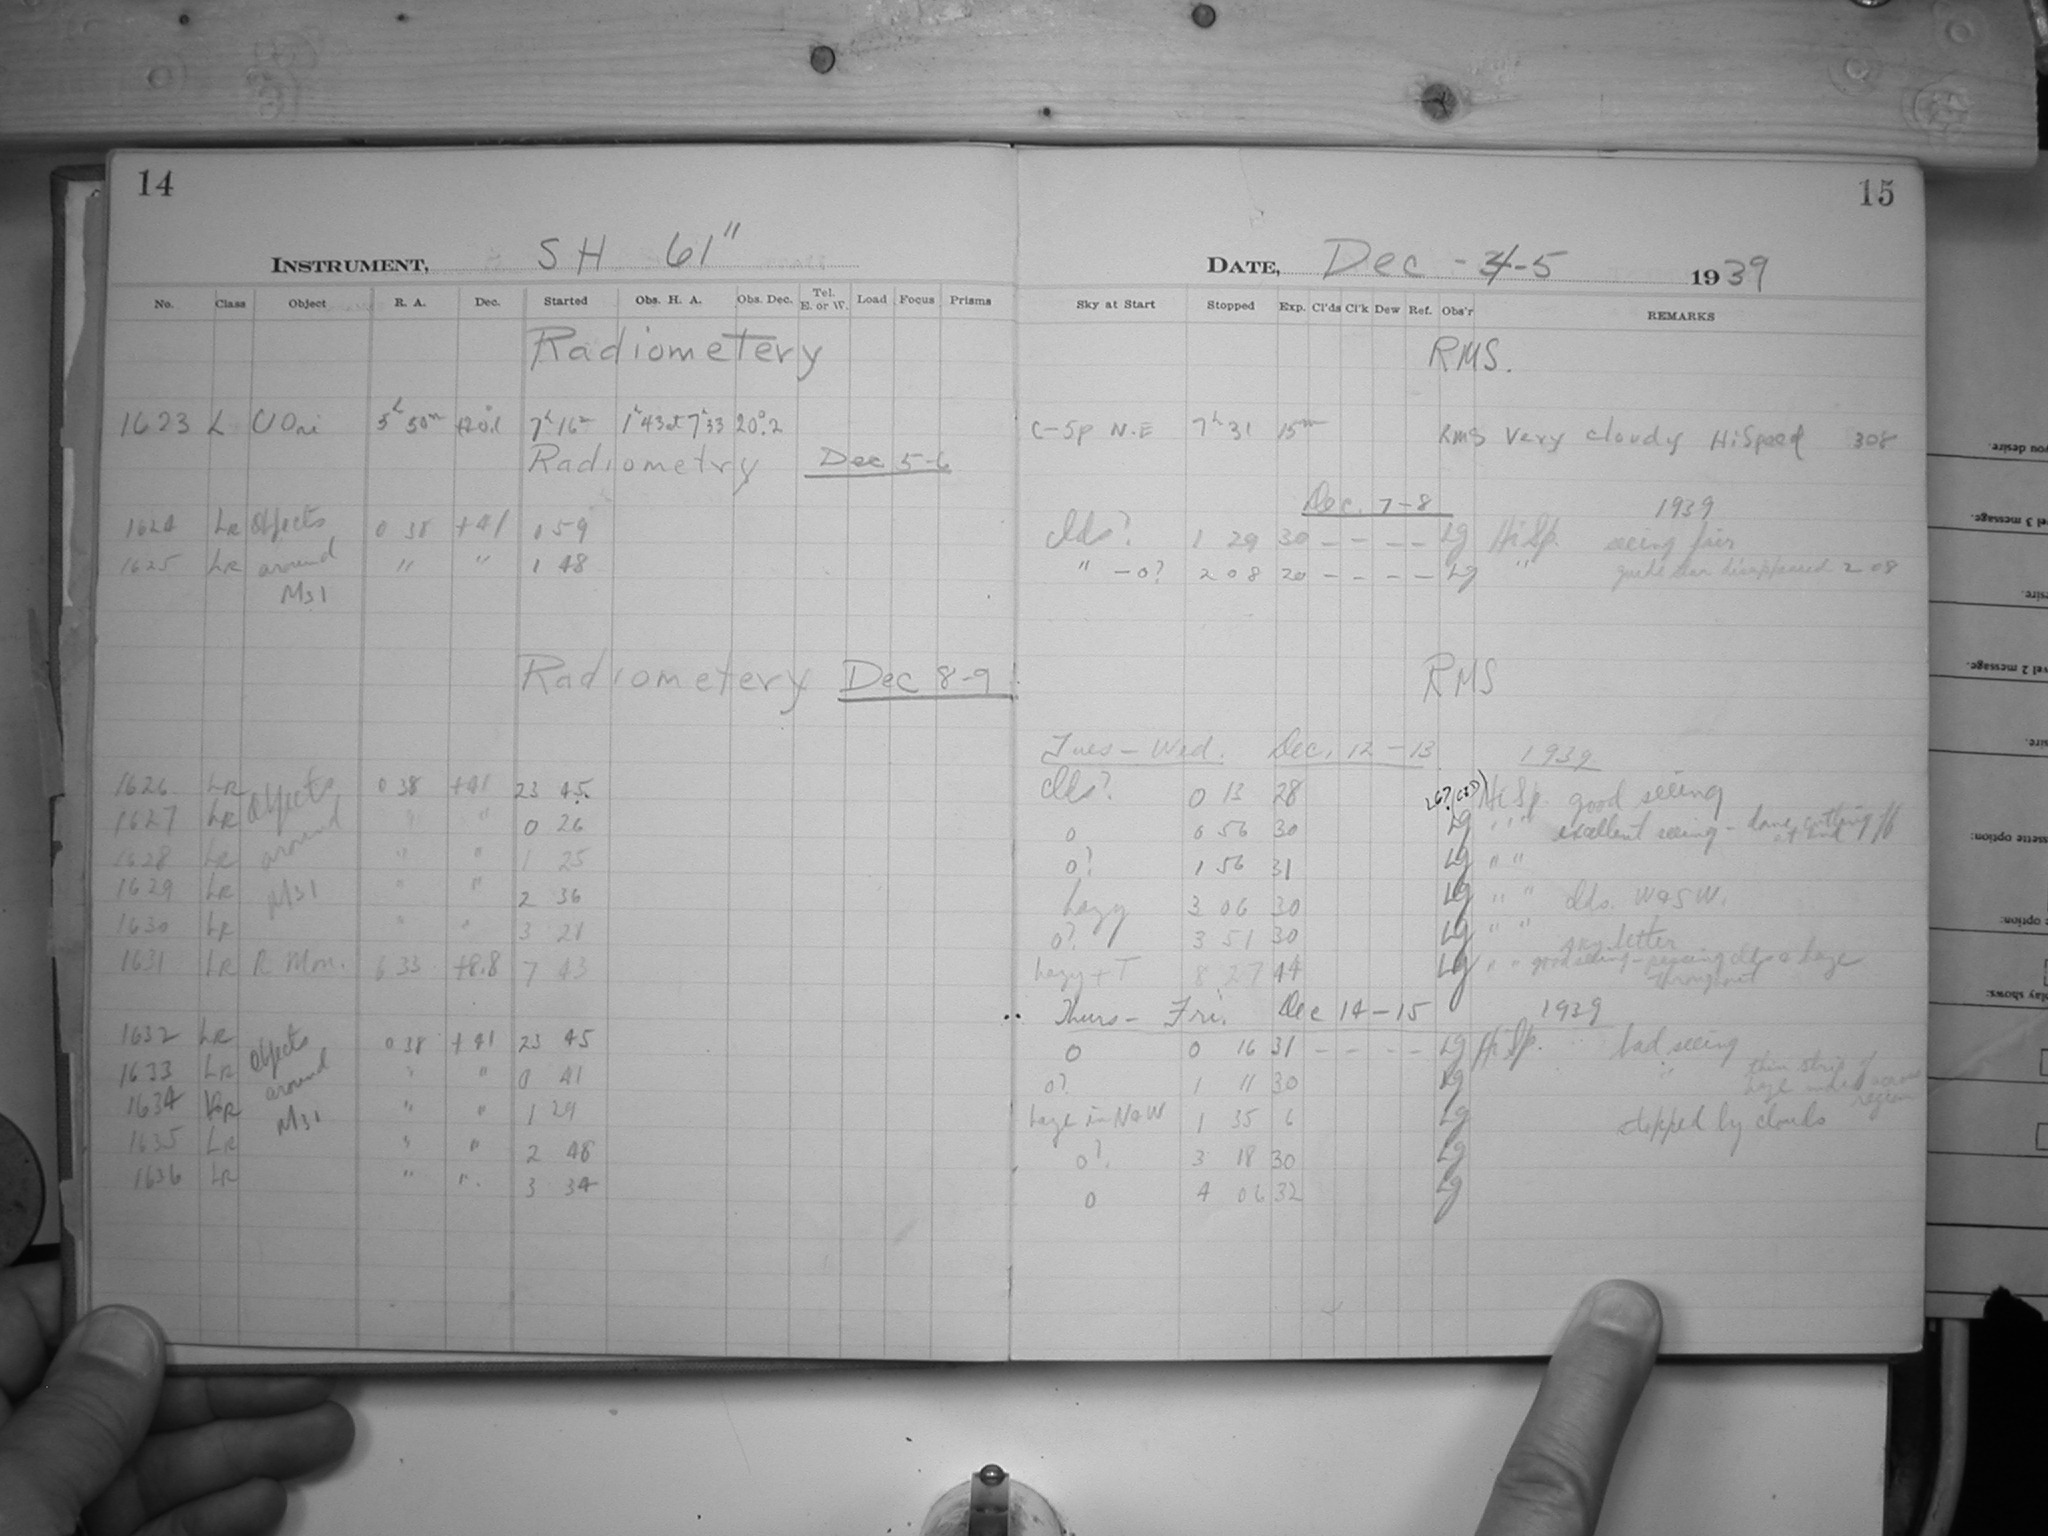 14
INSTRUMENT, SH 61"
No. Class Object R. A. Dec. Started Obs. H. A. Obs. Dec. Tel. E. or W. Load Focus Prisms
Radiometery
1623 L U Ori 5h 50m +20.1 7h 16m 1h 43 at 7h 33 20°.2
Radiometry Dec 5-6
1624 LR Objects 0 38 +41 0 59
1625 LR around " " 1 48
M31
Radiometery Dec 8-9
1626 LR Objects 0 38 +41 23 45
1627 LR around " " 0 26
1628 LR " " 1 25
1629 LR M31 " " 2 36
1630 LR " " 3 21
1631 LR R Mon. 6 33 +8.8 7 43
1632 LR Objects 0 38 +41 23 45
1633 LR around " " 0 41
1634 LR M31 " " 1 29
1635 LR " " 2 48
1636 LR " " 3 34
15
DATE, Dec - 4-5 1939
Sky at Start Stopped Exp. Cl'ds Cl'k Dew Ref. Obs'r REMARKS
RMS.
C-Sp N.E 7h 31 15m RMS Very cloudy HiSpeed 308
Dec. 7-8 1939
Clds? 1 29 30 - - - - Lg Hi Sp. seeing fair
" -0? 2 08 20 - - - - Lg " guide star disappeared 2 08
RMS
Tues - Wed. Dec. 12-13 1939
Clds? 0 13 28 Hi Sp. good seeing
0 0 56 30 Lg " " excellent seeing - dome cutting off at end
0? 1 56 31 Lg " "
hazy 3 06 30 Lg " " clds. W & SW.
0? 3 51 30 Lg " " sky better
hazy + T 8 27 44 Lg " " good seeing - passing clds & haze throughout
Thurs - Fri. Dec 14-15 1939
0 0 16 31 - - - - Lg Hi Sp. bad seeing
0? 1 11 30 Lg " thin strip of haze across region
haze in N & W 1 35 6 Lg stopped by clouds
0? 3 18 30 Lg
0 4 06 32 Lg
you desire.
3 message.
2 message.
option:
option:
play shows: